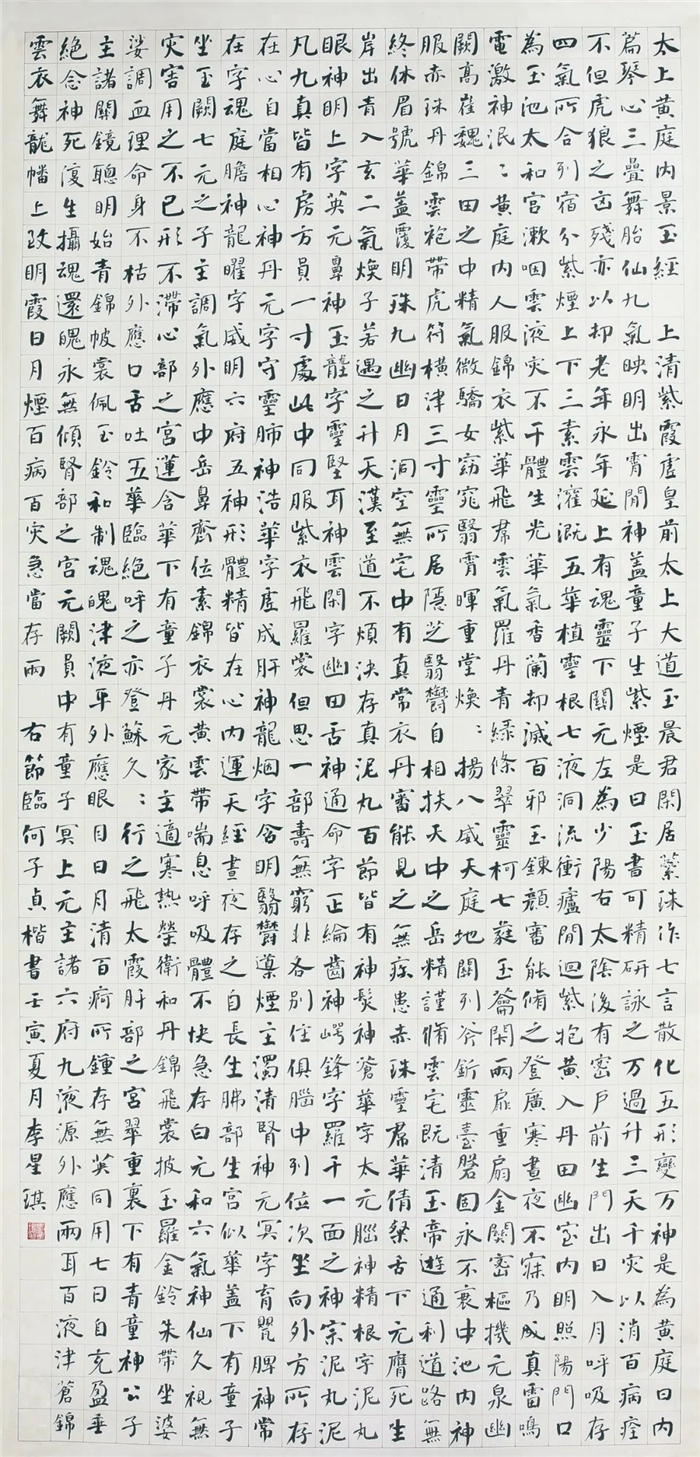 太上黄庭内景玉經　上清紫霞虛皇前太上大道玉晨君閑居蘂珠作七言散化五形變万神是為黄庭曰内
篇琴心三疊舞胎仙九氣映明出霄間神蓋童子生紫煙是曰玉書可精研詠之万過升三天千灾以消百病痊
不但虎狼之凶殘亦以却老年永年延上有魂靈下關元左為少陽右太陰後有密戶前生門出日入月呼吸存
四氣所合列宿分紫煙上下三素雲灌溉五華植靈根七液洞流衝廬間迴紫抱黄入丹田幽室内明照陽門口
為玉池太和宮漱咽雲液灾不干體生光華氣香蘭却滅百邪玉鍊顏審能脩之登廣寒晝夜不寐乃成真雷鳴
電激神泯:黄庭内人服錦衣紫華飛帬雲氣羅丹青緑條翠靈柯七蕤玉籥閑兩扉重扇金關密樞機元泉幽
闕高崔巍三田之中精氣微驕女窈窕翳霄暉重堂煥:揚八威天庭地關列斧釿靈臺磐固永不衰中池内神
服赤珠丹錦雲袍帶虎符橫津三寸靈所居隱芝翳鬱自相扶天中之岳精謹脩雲宅既清玉帝遊通利道路無
終休眉號華蓋覆明珠九幽日月洞空無宅中有真常衣丹審能見之無疾患赤珠靈帬華倩粲舌下元膺死生
岸出青入玄二氣煥子若遇之升天漢至道不煩決存真泥丸百節皆有神髮神蒼華字太元腦神精根字泥丸
眼神明上字英元鼻神玉壟字靈堅耳神雲閑字幽田舌神通命字正綸齒神崿鋒字羅千一面之神宗泥丸泥
凡九真皆有房方員一寸處此中同服紫衣飛羅裳但思一部壽無窮非各別住俱腦中列位次坐向外方所存
在心自當相心神丹元字守靈肺神浩華字虛成肝神龍烟字含明翳鬱導煙主濁清腎神元冥字育嬰脾神常
在字魂庭膽神龍曜字威明六府五神形體精皆在心内運天經晝夜存之自長生肺部生宮似華蓋下有童子
坐玉闕七元之子主調氣外應中岳鼻齊位素錦衣裳黄雲帶喘息呼吸體不快急存白元和六氣神仙久視無
灾害用之不已形不滯心部之宮蓮含華下有童子丹元家主適寒熱榮衛和丹錦飛裳披玉羅金鈴朱帶坐婆
娑調血理命身不枯外應口舌吐五華臨絕呼之亦登蘇久:行之飛太霞肝部之宮翠重裏下有青童神公子
主諸關鏡聰明始青錦帔裳佩玉鈴和制魂魄津液平外應眼目日月清百痾所鍾存無英同用七日自充盈垂
絕念神死復生攝魂還魄永無傾腎部之宮元闕員中有童子冥上元主諸六府九液源外應兩耳百液津蒼錦
雲衣舞龍幡上致明霞日月煙百病百灾急當存兩　右節臨何子貞楷書壬寅夏月李星琪